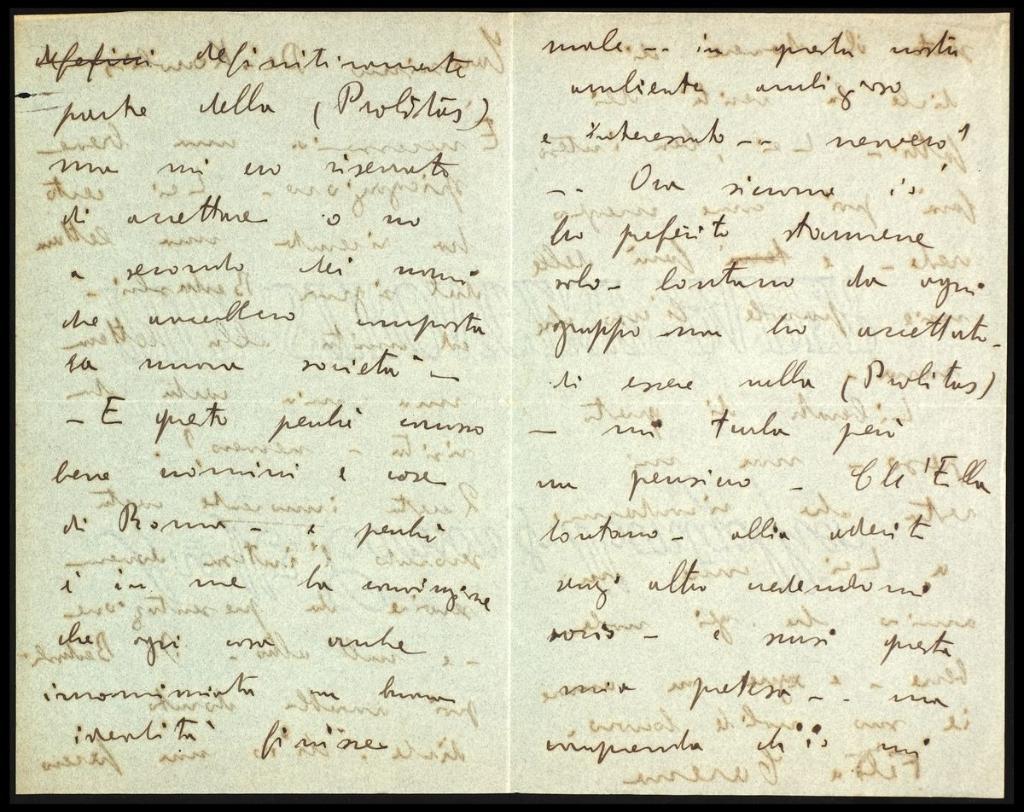 definitivamente
parte della (Probitas)
ma mi ero riservato
di accettare o no
a secondo dei nomi
che avrebbero composta
la nuova società –
– E questo perchè conosco
bene uomini e cose
di Roma – e perchè
è in me la convinzione
che ogni cosa anche
incominciata in buona
identità finisce
male – – in questa nostra
ambiente
e interessato – –
– – Ora siccome io
ho preferito starmene
solo – lontano da ogni
gruppo non ho accettato –
di essere nella (Probitas)
– mi turba però
un pensiero – Ch'Ella
lontano – abbia aderito
senz'altro credendomi
socio – e scusi questa
mia pretesa – – ma
comprenda ch'io mi